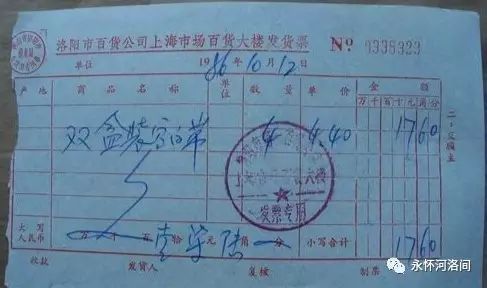 洛阳市百货公司上海市场百货大楼发货票 № 9338323
单位 1986年10月12日
产地 商品名称 单位 数量 单价 金额
万千百十元角分
双盒装 4 4.40 1760
二、交顾主
发票专用
大写人民币 万 千 百 拾 元 角 分 小写合计 1760
收款 发货人 复核 制票
永怀河洛间